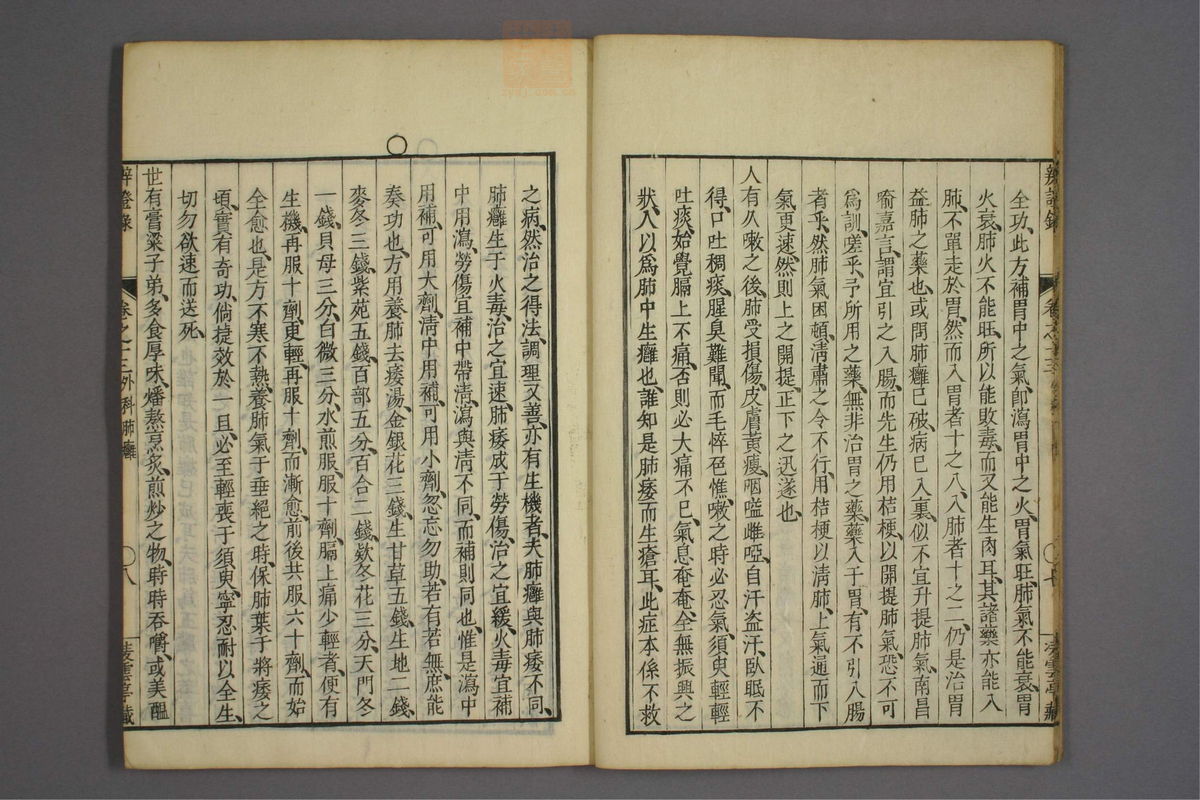 全功此方補胃中之氣卽瀉胃中之火胃氣旺肺氣不能衰胃
火衰肺火不能旺所以能敗毒而又能生肉耳其諸藥亦能入
肺不單走於胃然而入胃者十之八入肺者十之二仍是治胃
益肺之藥也或問肺癰已破病已入裏似不宜升提肺氣南昌
喻嘉言謂宜引之入腸而先生仍用桔梗以開提肺氣恐不可
爲訓嗟乎予所用之藥無非治胃之藥藥入于胃有不引入腸
者乎然肺氣困頓淸肅之令不行用桔梗以淸肺上氣通而下
氣更速然則上之開提正下之迅遂也
人有久嗽之後肺受損傷皮膚黃瘦咽嗌雌啞自汗盜汗臥眠不
得口吐稠痰腥臭難聞而毛悴色憔嗽之時必忍氣須臾輕輕
吐痰始覺膈上不痛否則必大痛不已氣息奄奄全無振興之
狀人以爲肺中生癰也誰知是肺痿而生瘡耳此症本係不救
之病然治之得法調理又善亦有生機者夫肺癰與肺痿不同
肺癰生于火毒治之宜速肺痿成于勞傷治之宜緩火毒宜補
中用瀉勞傷宜補中帶淸瀉與淸不同而補則同也惟是瀉中
用補可用大劑淸中用補可用小劑忽忘勿助若有若無庶能
奏功也方用養肺去痿湯金銀花三錢生甘草五錢生地二錢
麥冬三錢紫苑五錢百部五分百合二錢欵冬花三分天門冬
一錢貝母三分白微三分水煎服服十劑膈上痛少輕者便有
生機再服十劑更輕再服十劑而漸愈前後共服六十劑而始
全愈也是方不寒不熱養肺氣于垂絕之時保肺葉于將痿之
頃實有奇功倘捷效於一旦必至輕喪于須臾寧忍耐以全生
切勿欲速而送死
世有膏粱子弟多食厚味燔熬烹炙煎炒之物時時吞嚼或美醞
辨證錄
卷之十三外科肺癰
八
凌雲亭藏